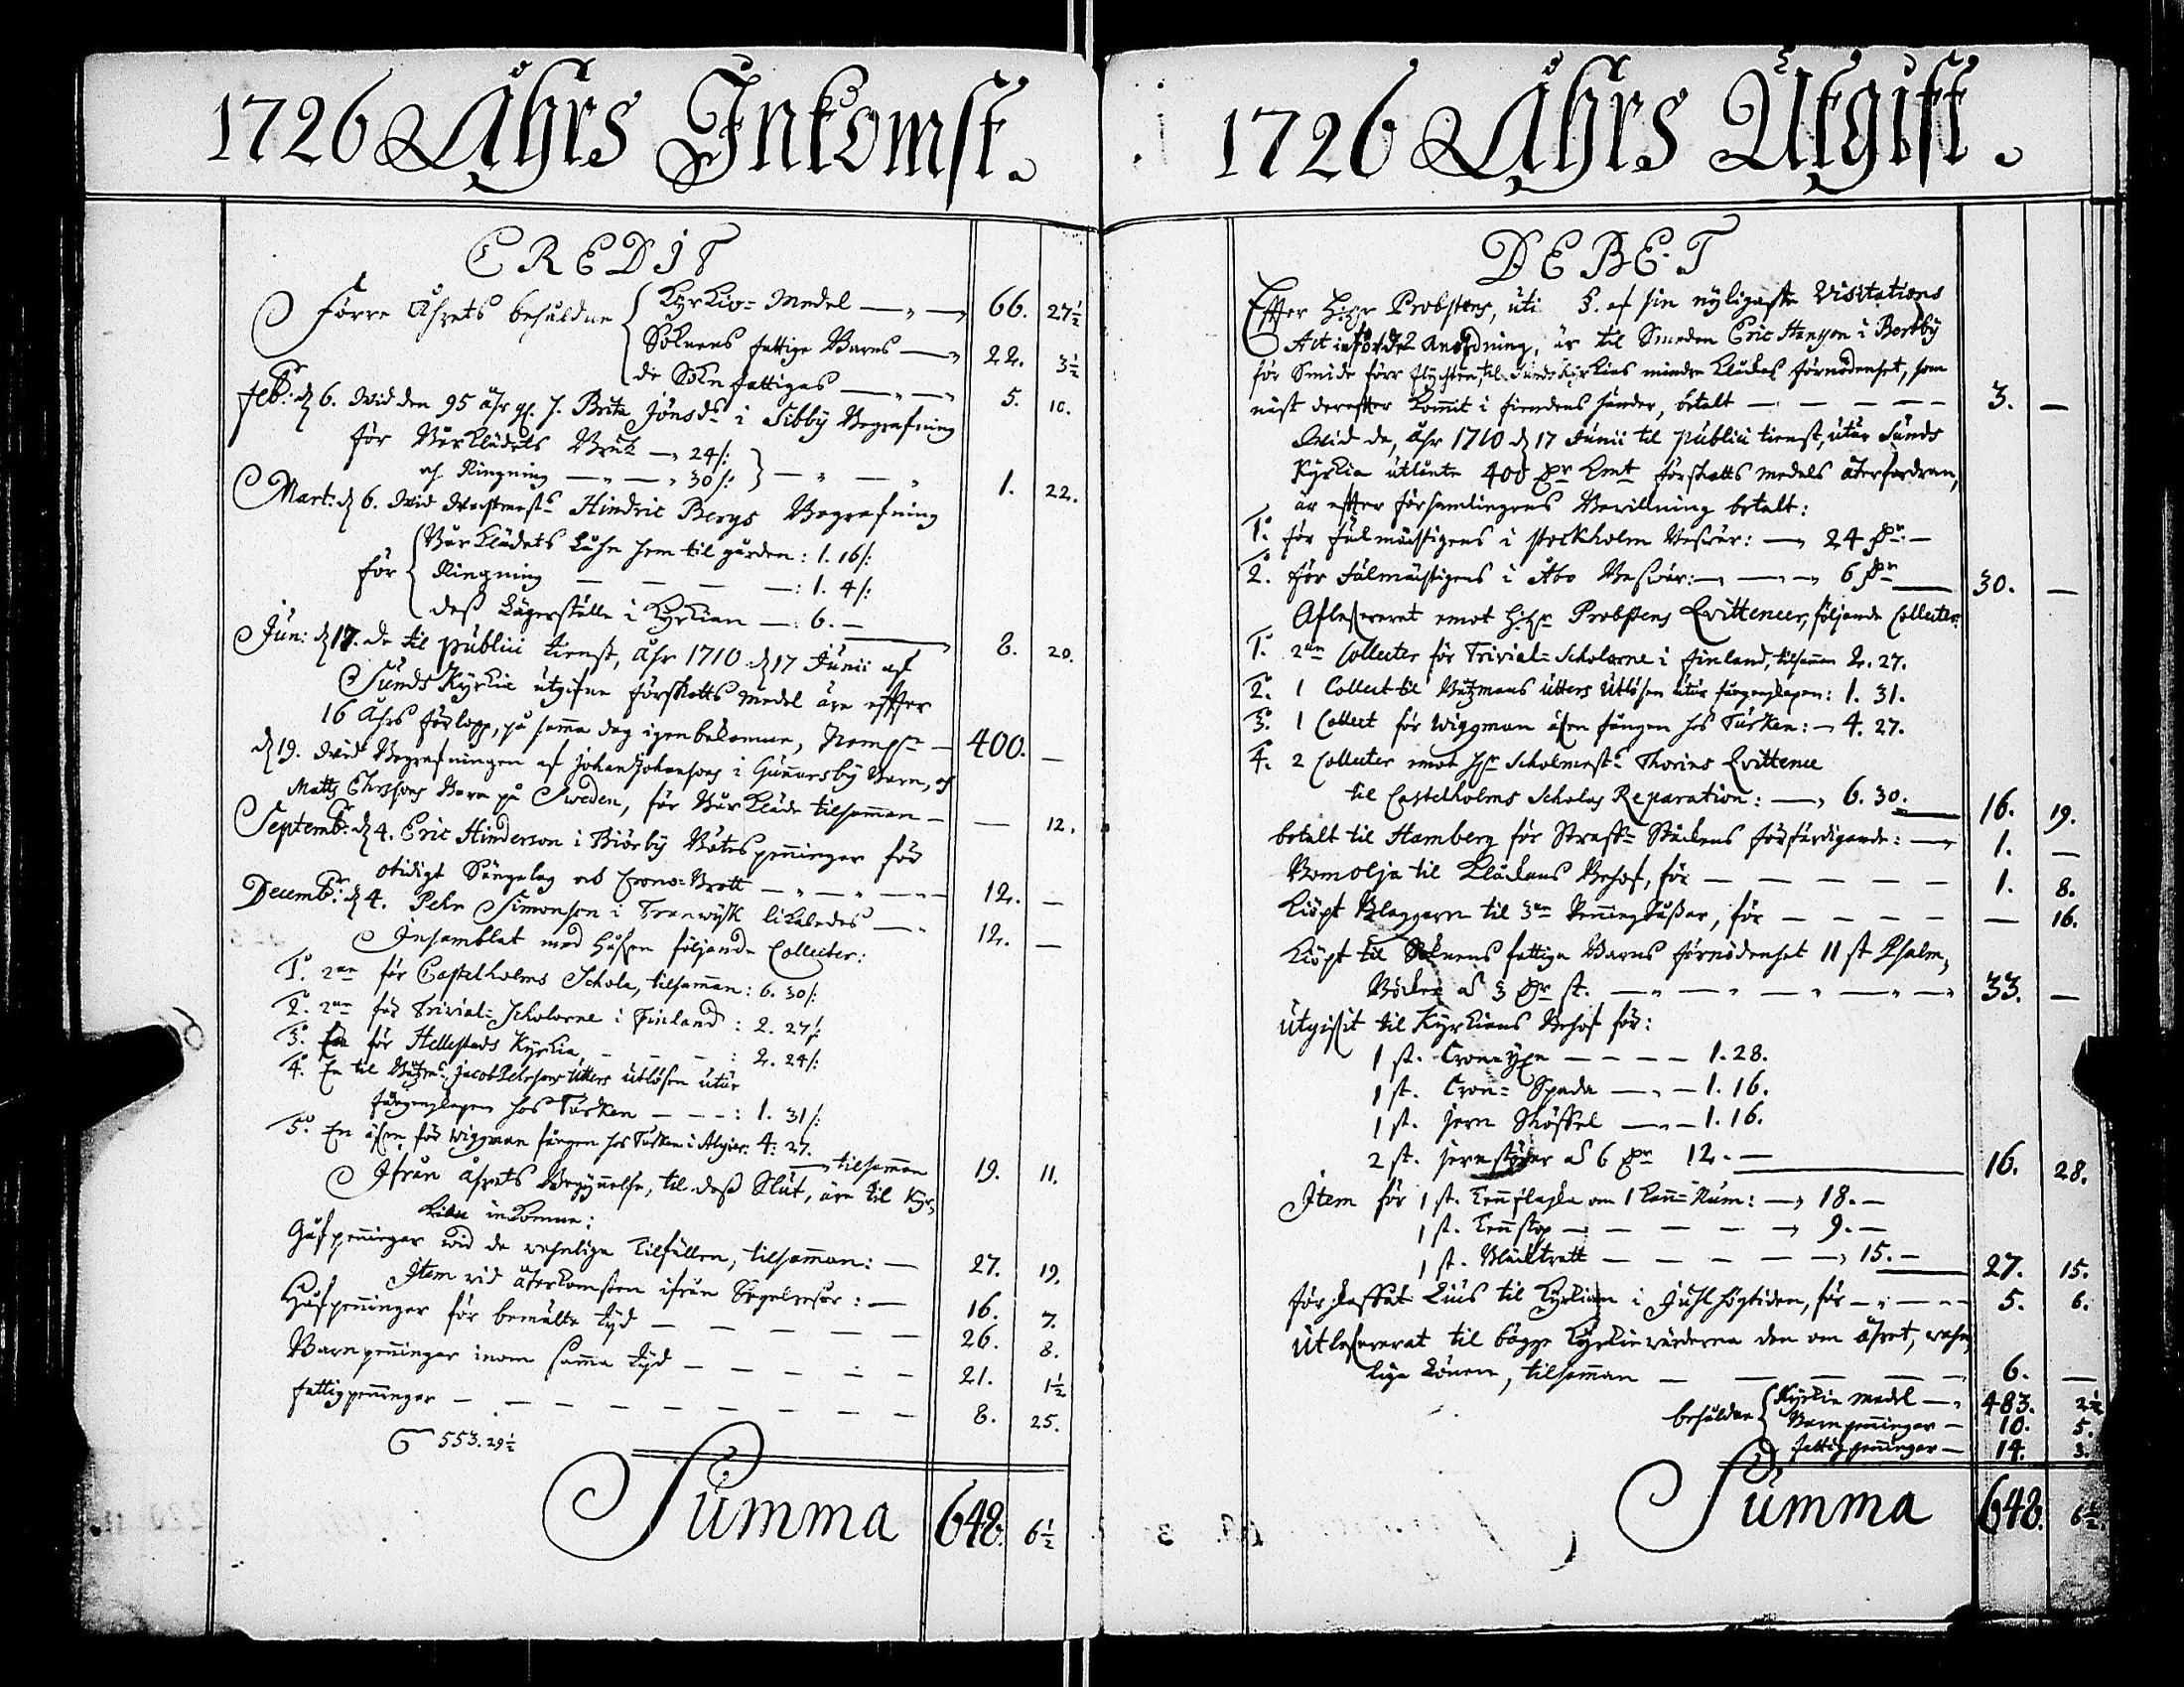 1726 Åhrs Inkomst.
CREDIT
Förre Åhrets behåldne Kyrkio-Medel — 66. 27½
Soknens fattige Barns — 22. 3½
de Sokn fattigas — 5. 10.
Feb: d 6. Wid den 95 åhr gl. H. Brita Jönsdr i Sibby Begrafning
för Bårklädets Bruk — 24/:
och Ringning — 30/: — 1. 22.
Mart: d 6. Wid Hindric Bergs Begrafning
för Bårklädets Låhn hem til gården: 1. 16/:
Ringning — : 1. 4/:
dess Lägerställe i Kyrkian — 6. — 8. 20.
Jun: d 17. de til publici tienst, åhr 1710 d 17 Junii af
Sunds Kyrkia utgifne förskotts medel äre effter
16 Åhrs förlopp, på samma dag igenbekomne, — 400. —
d 19. Wid Begrafningen af Johan Johansons i Gunnarsby Barn, och
Matts Barn på Sweden, för Bårkläde tilsamman — — 12.
Septembr: d 4. Eric Hinderson i Biörby Bötespenningar för
otidigt Sängelag — 12. —
Decembr: d 4. Pehr Simonson i Tranwijk likaledes — 12. —
Insamblat med Håfwen följande Collecter:
1o. 2ne för Castelholms Schola, tilsamman: 6. 30/:
2o. 2ne för Trivial-Scholorne i Finland: 2. 27/:
3o. En för Hellestads Kyrkia, — : 2. 24/:
4. En til Båtzm: Jacob Utters utlösen utur
fångenskapen hos Turken — : 1. 31/:
5o. En för Wiggman fången hos Turken i Algier: 4: 27.
— tilsamman 19. 11.
Ifrån åhrets Begynnelse, til dess Slut, äre til Kyr-
kian inkomne:
Gåfpenningar wid de wahnlige Tilfällen, tilsamman: — 27. 19.
Item wid återkomsten ifrån Segelresor: — 16. 7.
Håfpenningar för bemälte tijd — 26. 8.
Barnpenningar inom samma tijd — 21. 1½
Fattigpenningar — 8. 25.
553. 29½
Summa 648. 6½
1726 Åhrs Utgift.
DEBET
Effter H:r Probstens, uti § af sin nyligaste Visitations
Act införde anordning, är til Smeden Eric Hanson i Bertby
för Smide förr flychten, til Sunds Kyrkias mindre Klockas förnödenhet, som
näst derefter kommit i fiendens händer, betalt — 3. —
Wid de, åhr 1710 d 17 Junii til publici tienst, utur Sunds
Kyrkia utlånte 400 förskotts medels återfordran,
är effter församlingens Bewillning betalt:
1o. för Fulmächtigens i Stockholm Beswär: — 24 —
2. för Fulmächtigens i Åbo Beswär: — 6 — 30. —
Aflefwererat emot Probstens Qvittencer, följande Collecter:
1o. 2ne Collecter för Trivial-Scholorne i Finland, tilsamman 2. 27.
2o. 1 Collect til Båtzmans Utters Utlösen utur fångenskapen: 1. 31.
3o. 1 Collect för Wiggman fången hos Turken: — 4. 27.
4. 2 Collecter emot Scholmest: Thorins Qvittence
til Castelholms Scholas Reparation: — 6. 30. 16. 19.
betalt til Hamberg för Straff-Stockens förfärdigande: — 1. —
Bomolja til Klockans Behof, för — 1. 8.
Kiöpt Blaggarn til 3ne Penningpåssar, för — — 16.
Kiöpt til Soknens fattige Barns förnödenhet 11 st Psalm-
Böcker à 3 st. — 33. —
Utgifwit til Kyrkians Behof för:
1 st. — 1. 28.
1 st. Spada — 1. 16.
1 st. Jern Skoffel — 1. 16.
2 st. à 6 12. — 16. 28.
Item för 1 st. Tennflaska om 1 Kann-Rum: — 18. —
1 st. Tennstop — 9. —
1 st. — 15. — 27. 15.
förskaffat Lius til Kyrkian i Juhlhögtiden, för — 5. 6.
Utlefwererat til bägge Kyrkiowärderna den om åhret, wahn-
lige Lönen, tilsamman — 6. —
behåldne Kyrkio medel — 483. 2½
Barnpenningar — 10. 5.
Fattigpenningar — 14. 3.
Summa 648. 6½.